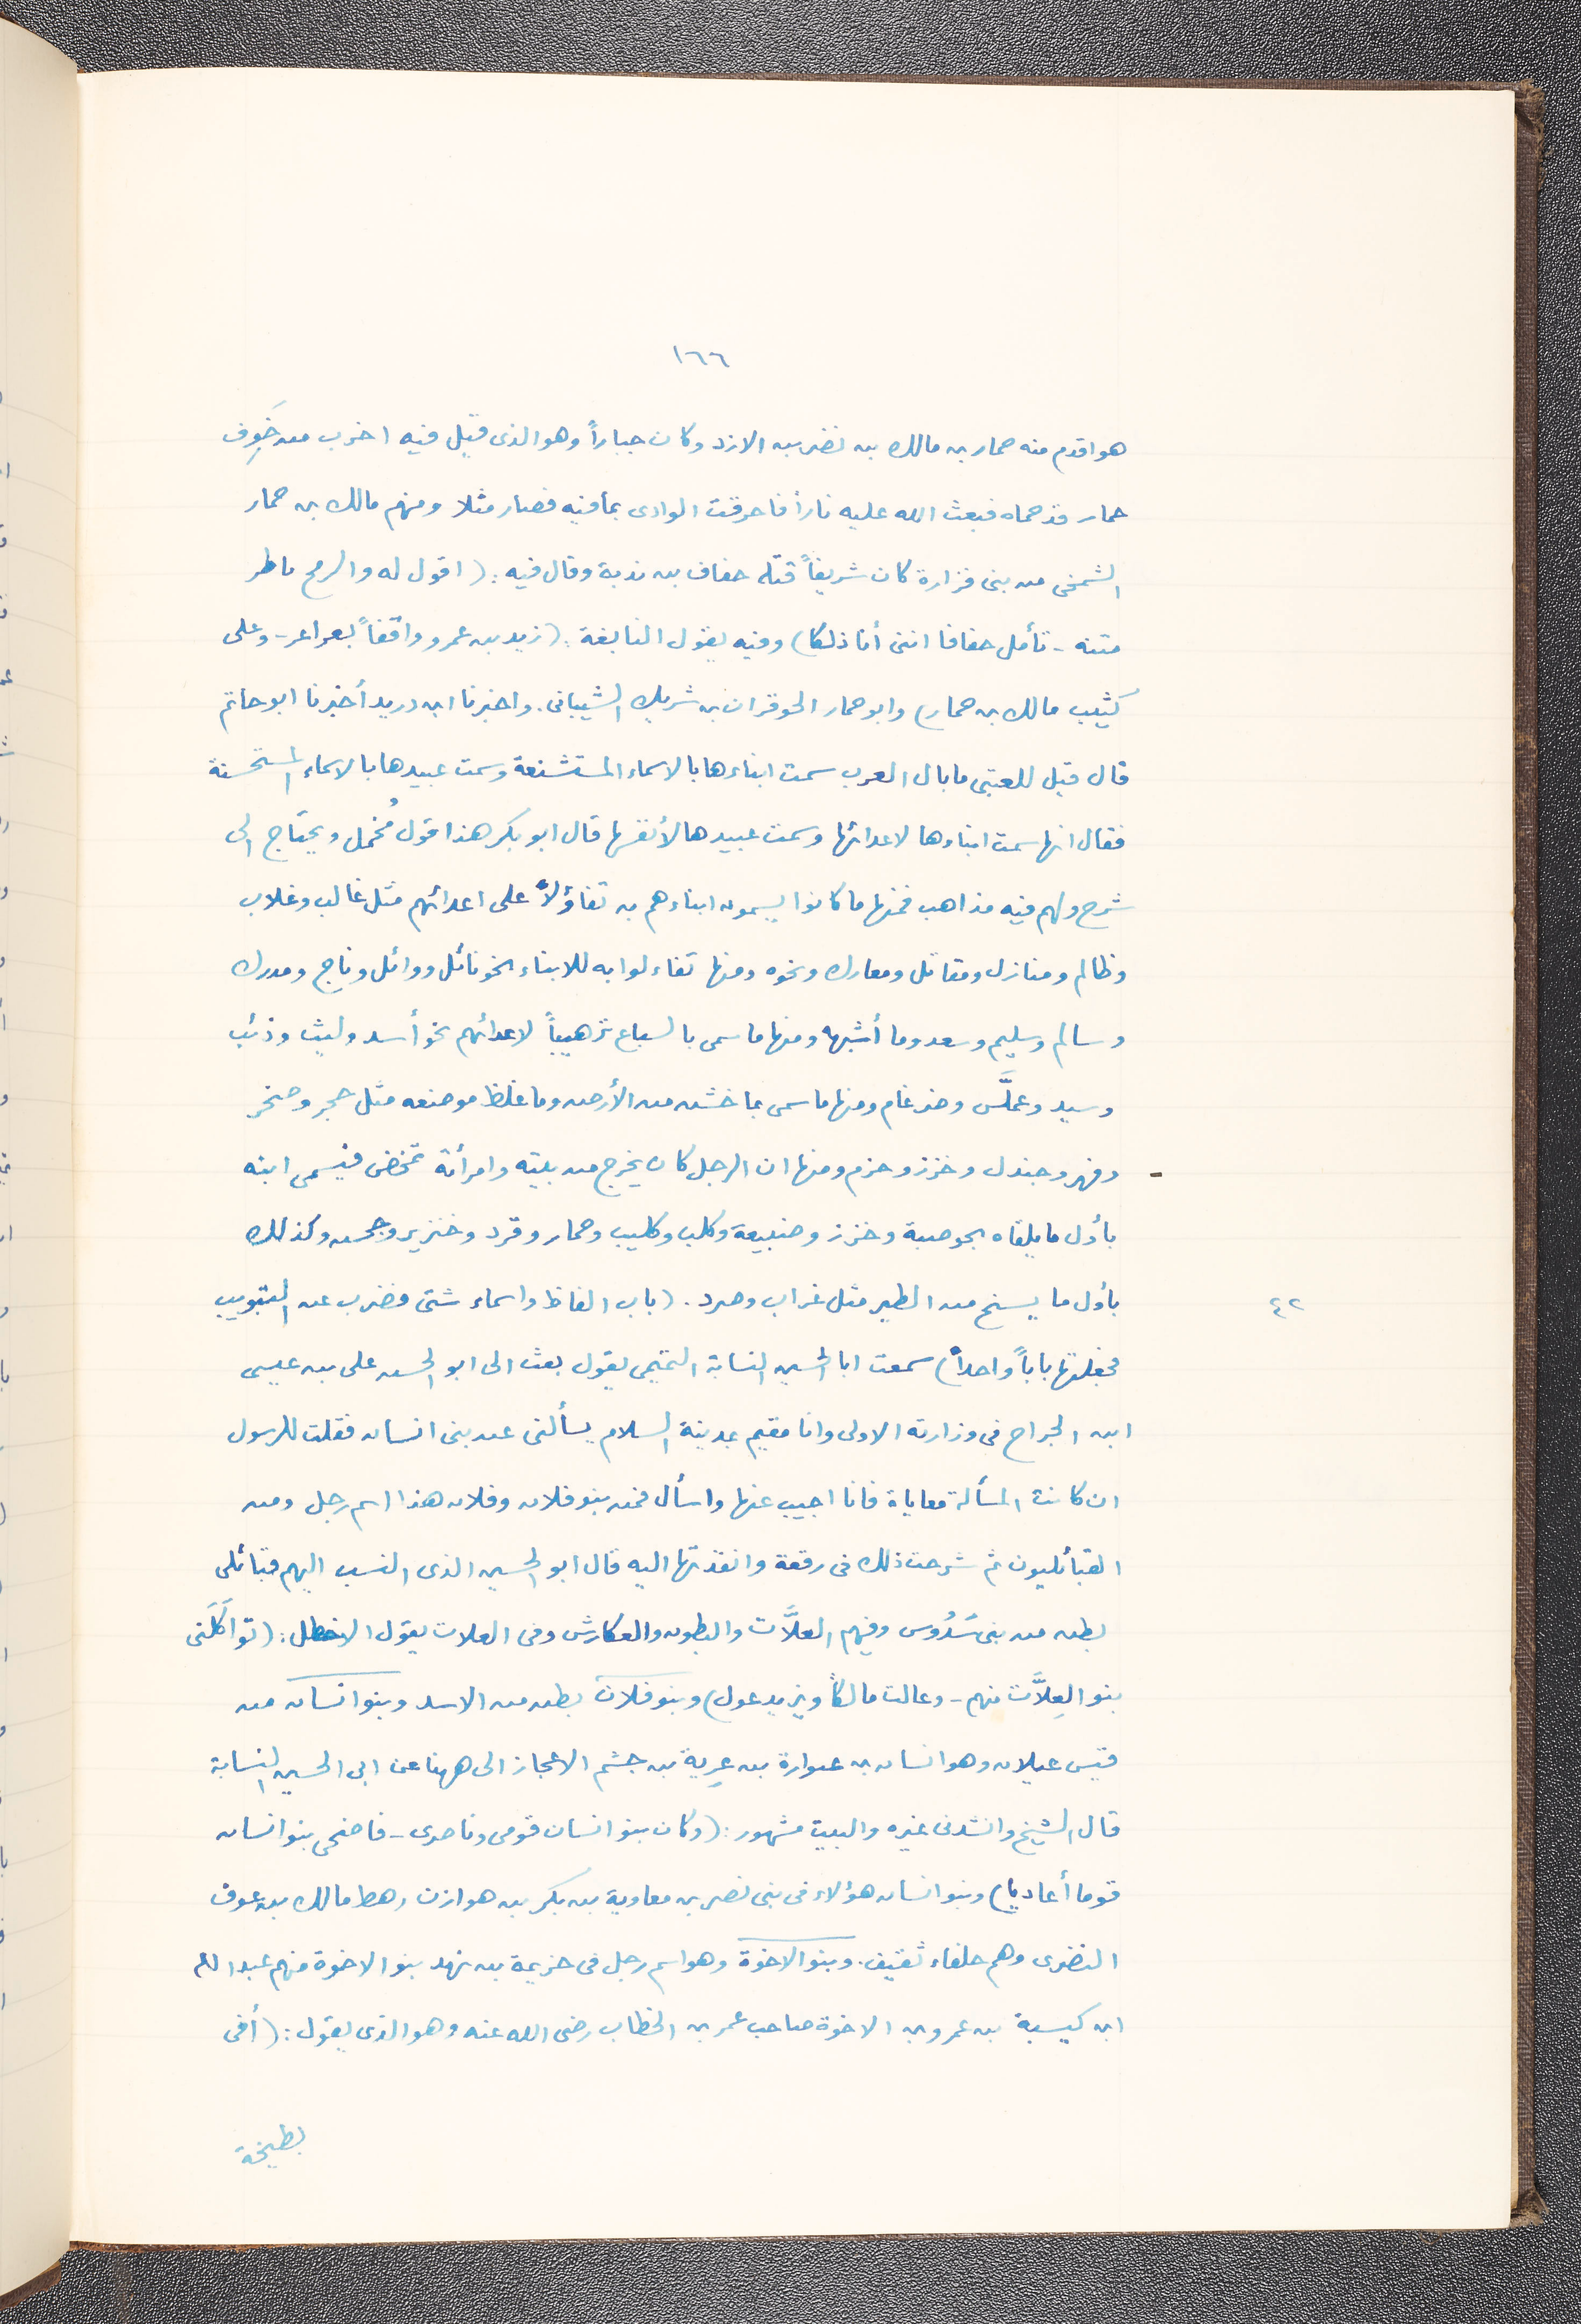 ١٦٦
هو اقدم منه حمار بن مالك بن نضر بن الازد وكان جباراً وهو الذى قيل فيه اخرب من جَوف
حمار قد حماه فبعث الله عليه ناراً فاحرقت الوادى بما فيه فصار مثلا ومنهم مالك بن حمار
الشمخى من بنى فزارة كان شريفاً قتله خفاف بن ندبة وقال فيه : ( اقول له والرمح ياطر
متنه - تأمل خفافا اننى أنا ذلكا ) وفيه يقول النابغة : ( زيد بن عمرو واقفاً بعراعر - وعلى
كثيب مالك بن حمار ) وابو حمار الحوفزان بن شريك الشيبانى . واخبرنا ابن دريد أخبرنا ابو حاتم
قال قيل للعتبى ما بال العرب سمت ابناءها بالاسماء المستشنعة وسمت عبيدها بالاسماء المستحسنة
فقال انها سمت ابناءها لاعدائها وسمت عبيدها لأنفسها قال ابو بكر هذا قول مُجمل ويحتاج الى
شرح ولهم فيه مذاهب فمنها ما كانوا يسمون ابناءهم به تفاؤلاً على اعدائهم مثل غالب وغلاب
وظالم ومنازل ومقاتل ومعارك ونحوه ومنها تفاءلوا به للابناء نحو نائل ووائل وناج ومدرك
وسالم وسليم وسعد وما أشبهه ومنها ما سمى بالسباع ترهيباً لاعدائهم نحو أسد وليث وذئب
وسيد وعملَّس وضرغام ومنها ما سمى بما خشن من الأرض وما غلظ موضعه مثل حجر وصخر
- وفهر وجندل وخزز وحزم ومنها ان الرجل كان يخرج من بيته وامرأته تمخض فيسمى ابنه
بأول ما يلقاه نحو ضبة وخزز وضبيعة وكلب وكليب وحمار وقرد وخنزير وجحش وكذلك
بأول ما يسنح من الطير مثل غراب وصرد . ( باب الفاظ واسماء شتى فضرب عن التبويب
٤٢
فجعلتها باباً واحداً ) سمعت ابا الحسين النسابة التميمى يقول بعث الى ابو الحسن على بن عيسى
ابن الجراح فى وزارته الاولى وانا مقيم بمدينة السلام يسألنى عن بنى انسان فقلت للرسول
ان كانت المسألة معاياة فانا اجيب عنها واسأل فمن بنو فلان وفلان هذا اسم رجل ومن
القبائليون ثم شرحت ذلك فى رقعة وانفذتها اليه قال ابو الحسين الذى النسب اليهم قبائلى
بطن من بنى سَدُوس وفيهم العلاَّت والبطون والعكارش وفى العلات يقول الاخطل : ( تواكَلَنى
بنو العِلاَّت منهم - وعالت مالكاً ويزيد عول ) وبنو فلان بطن من الاسد وبنو انسان من
قيس عيلان وهو انسان بن عتوارة بن غزية بن جشم الاعجاز الى ههنا عن ابى الحسين النسابة
قال الشيخ وانشدنى غيره والبيت مشهور : ( وكان بنو انسان قومى وناصرى - فاضحى بنو انسان
قوما أعاديا ) وبنو انسان هؤلاء فى بنى نصر بن معاوية بن بكر بن هوازن رهط مالك بن عوف
النضرى وهم حلفاء ثقيف . وبنو الاخوة وهو اسم رجل فى خزيمة بن نهد بنو الاخوة منهم عبد الله
ابن كيسبة بن عمرو بن الاخوة صاحب عمر بن الخطاب رضى الله عنه وهو الذى يقول : ( أفى
بطيخة